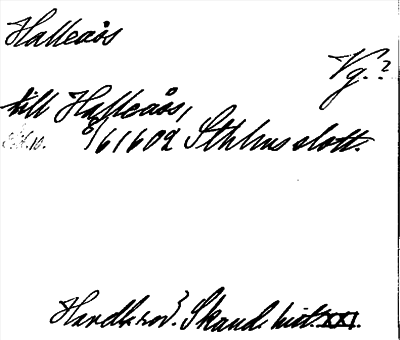 Halleaås
Vg.?
till Halleaås,
6/6 1602 Sthlms slott.
Handl. rör. Skand. hist. XXI.